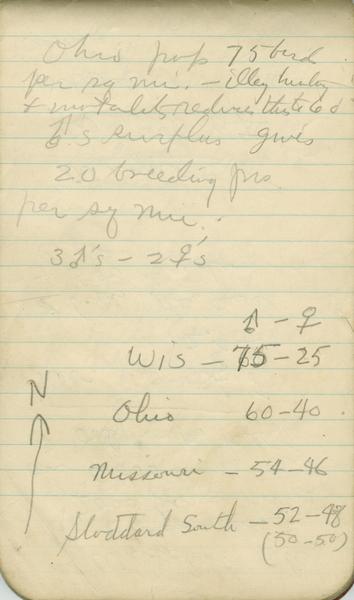 Ohio pop 75 birds
per sq mi. - illeg hunting
& mortality reduces this to 60
♂s surplus gives
20 breeding prs
per sq mi.
3♂'s - 2♀'s
♂ - ♀
Wis - 75-25
N
Ohio 60-40
Missouri - 54-46
Stoddard South - 52-48
(50-50)